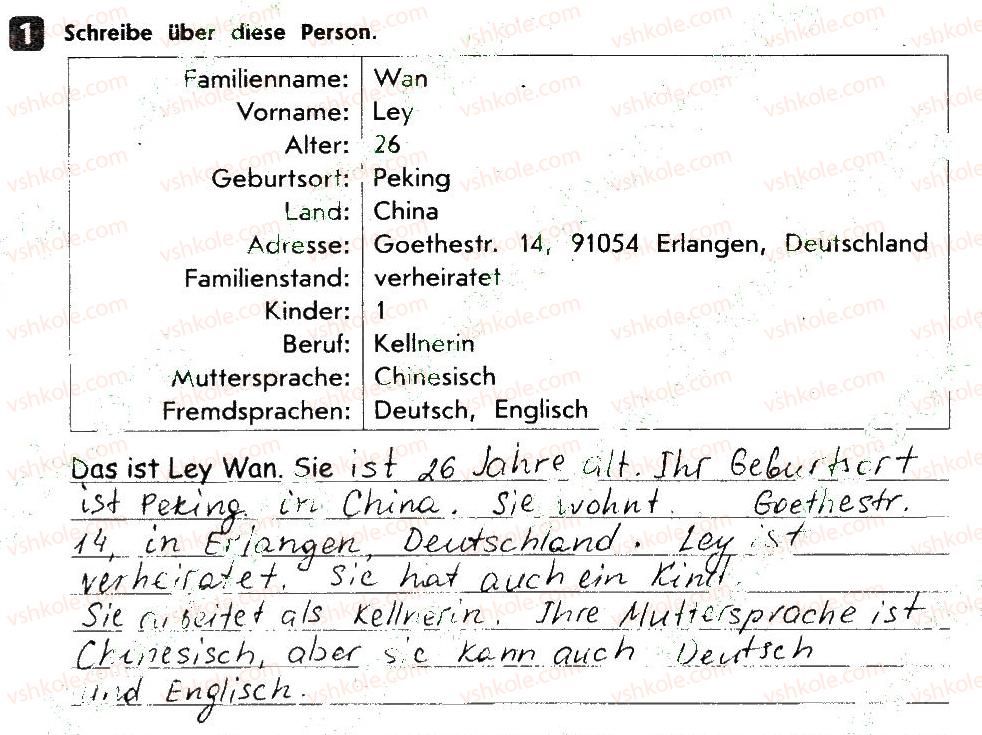 1 Schreibe über diese Person.
Familienname: Wan
Vorname: Ley
Alter: 26
Geburtsort: Peking
Land: China
Adresse: Goethestr. 14, 91054 Erlangen, Deutschland
Familienstand: verheiratet
Kinder: 1
Beruf: Kellnerin
Muttersprache: Chinesisch
Fremdsprachen: Deutsch, Englisch
Das ist Ley Wan. Sie ist 26 Jahre alt. Ihr Geburtsort
ist Peking in China. Sie wohnt Goethestr.
14, in Erlangen, Deutschland. Ley ist
verheiratet. Sie hat auch ein Kind.
Sie arbeitet als Kellnerin. Ihre Muttersprache ist
Chinesisch, aber sie kann auch Deutsch
und Englisch.